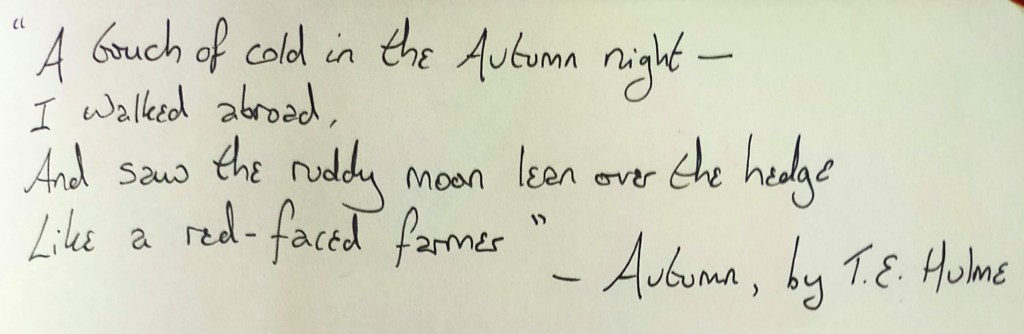 "A touch of cold in the Autumn night –
I walked abroad,
And saw the ruddy moon lean over the hedge
Like a red-faced farmer"
– Autumn, by T.E. Hulme